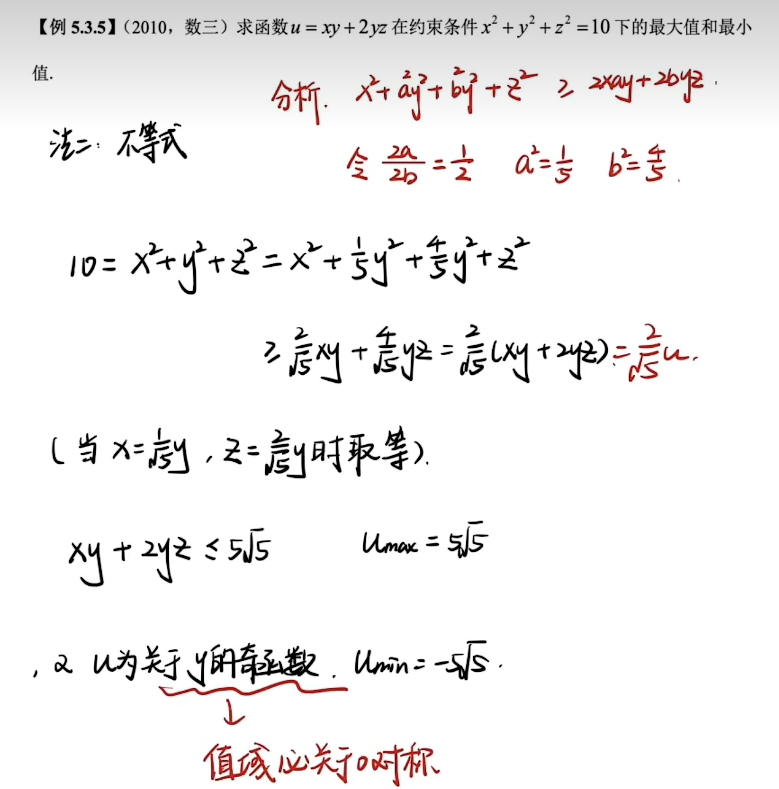 【例 5.3.5】(2010，数三) 求函数 u = xy + 2yz 在约束条件 x² + y² + z² = 10 下的最大值和最小
值.
分析. x² + a²y² + b²y² + z² ≥ 2xay + 2byz.
法二: 不等式
令 2a/2b = 1/2 a² = 1/5 b² = 4/5.
10 = x² + y² + z² = x² + 1/5 y² + 4/5 y² + z²
≥ 2/√5 xy + 4/√5 yz = 2/√5 (xy + 2yz) = 2/√5 u.
(当 x = 1/√5 y, z = 2/√5 y 时取等).
xy + 2yz ≤ 5√5 Umax = 5√5
, 2 u为关于y的奇函数. Umin = -5√5.
↓
值域必关于0对称